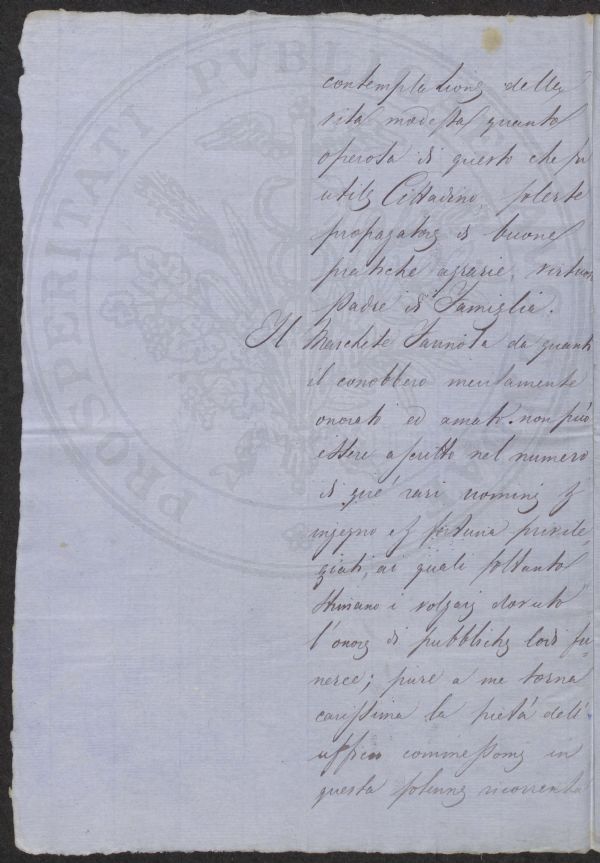 contemplazione della
vita modesta quanto
operosa di questo che fu
utile Cittadino, solerte
propagatore di buone
pratiche agrarie, virtuoso
Padre di Famiglia.
Il Marchese da quanti
il conobbero meritamente
onorato ed amato. non può
essere ascritto nel numero
di que' rari uomini
ingegno e fortuna privile-
giati, ai quali soltanto
stimano i volgari dovuto
l'onore di pubbliche lodi fu-
neree; pure a me torna
carissima la pietà dell'
ufficio commessomi in
questa solenne ricorrenza
PROSPERITATI PVBLIC